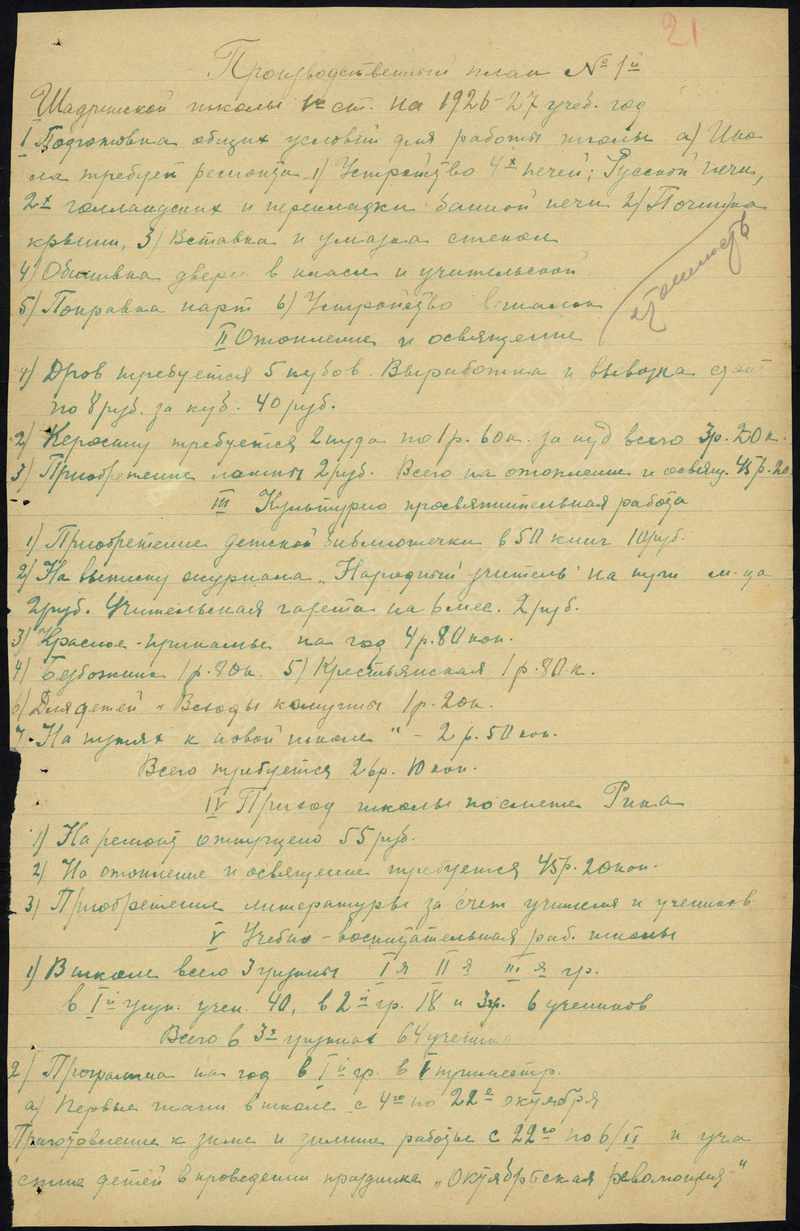 21
Производственный план № 1й
Шадринской школы 1й ст. на 1926-27 учеб. год
I Подготовка общих условий для работы школы а) Шко
ла требует ремонта 1) Устройство 4х печей; Русской печи,
2х голландских и перекладки банной печи 2) Починка
крыши, 3) Вставка и умазка стекол
4) Обшивка двери в классе и учительской
5) Поправка парт 6) Устройство
II Отопление и освящение
1) Дров требуется 5 кубов. Выработка и вывозка стоит
по 8 руб. за куб. 40 руб.
2) Керосину требуется 2 пуда по 1 р. 60 к. за пуд всего 3 р. 20 к.
3) Приобретение лампы 2 руб. Всего на отопление и освящ. 45 р. 20
III Культурно просвятительная работа
1) Приобретение детской библиотечки в 50 книг 10 руб.
2) На выписку журнала „Народный учитель" на три м-ца
2 руб. Учительская газета на 6 мес. 2 руб.
3) Красное-прикамье на год 4 р. 80 коп.
4) Безбожник 1 р. 80 к. 5) Крестьянская 1 р. 80 к.
6) Для детей „Всходы коммуны 1 р. 20 к.
7. На путях к новой школе" - 2 р. 50 коп.
Всего требуется 26 р. 10 коп.
IV Приход школы по смете Рика
1) На ремонт отпущено 55 руб.
2) На отопление и освящение требуется 45 р. 20 коп.
3) Приобретение литературы за счет учителя и учеников
V Учебно-воспитательная раб. школы
1) В школе всего 3 группы I я II я III я гр.
в I й груп. учен. 40, в 2 й гр. 18 и 3 гр. 6 учеников
Всего в 3х группах 64 ученика
2) Программа на год в I й гр. в I триместр.
а) Первые шаги в школе с 4го по 22е октября
Приготовление к зиме и зимние работы с 22го по 6/II и уча
стие детей в проведении праздника „Октябрьская революция"